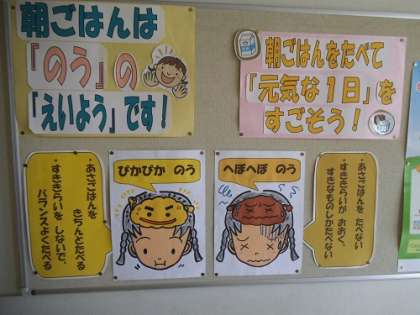 朝ごはんは
『のう』の
「えいよう」です！
朝ごはんをたべて
「元気な１日」を
すごそう！
・あさごはんを
きちんとたべる
・すききらいを しないで、
バランスよくたべる
ぴかぴか のう
へぼへぼ のう
・あさごはんを たべない
・すききらいが おおく、
すきなものしかたべない